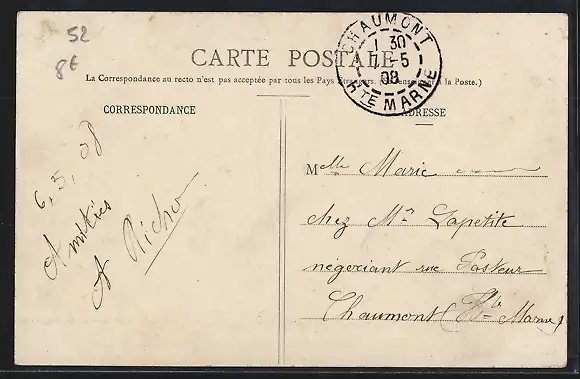 52
8€
CARTE POSTALE
La Correspondance au recto n'est pas acceptée par tous les Pays Étrangers. (Se renseigner à la Poste.)
CHAUMONT
1 30
7-5
08
HTE MARNE
CORRESPONDANCE
ADRESSE
6, 5, 08
Amitiés
A Richo
Mlle Marie
chez Mr Lapetite
négociant rue Pasteur
Chaumont (Hte Marne)